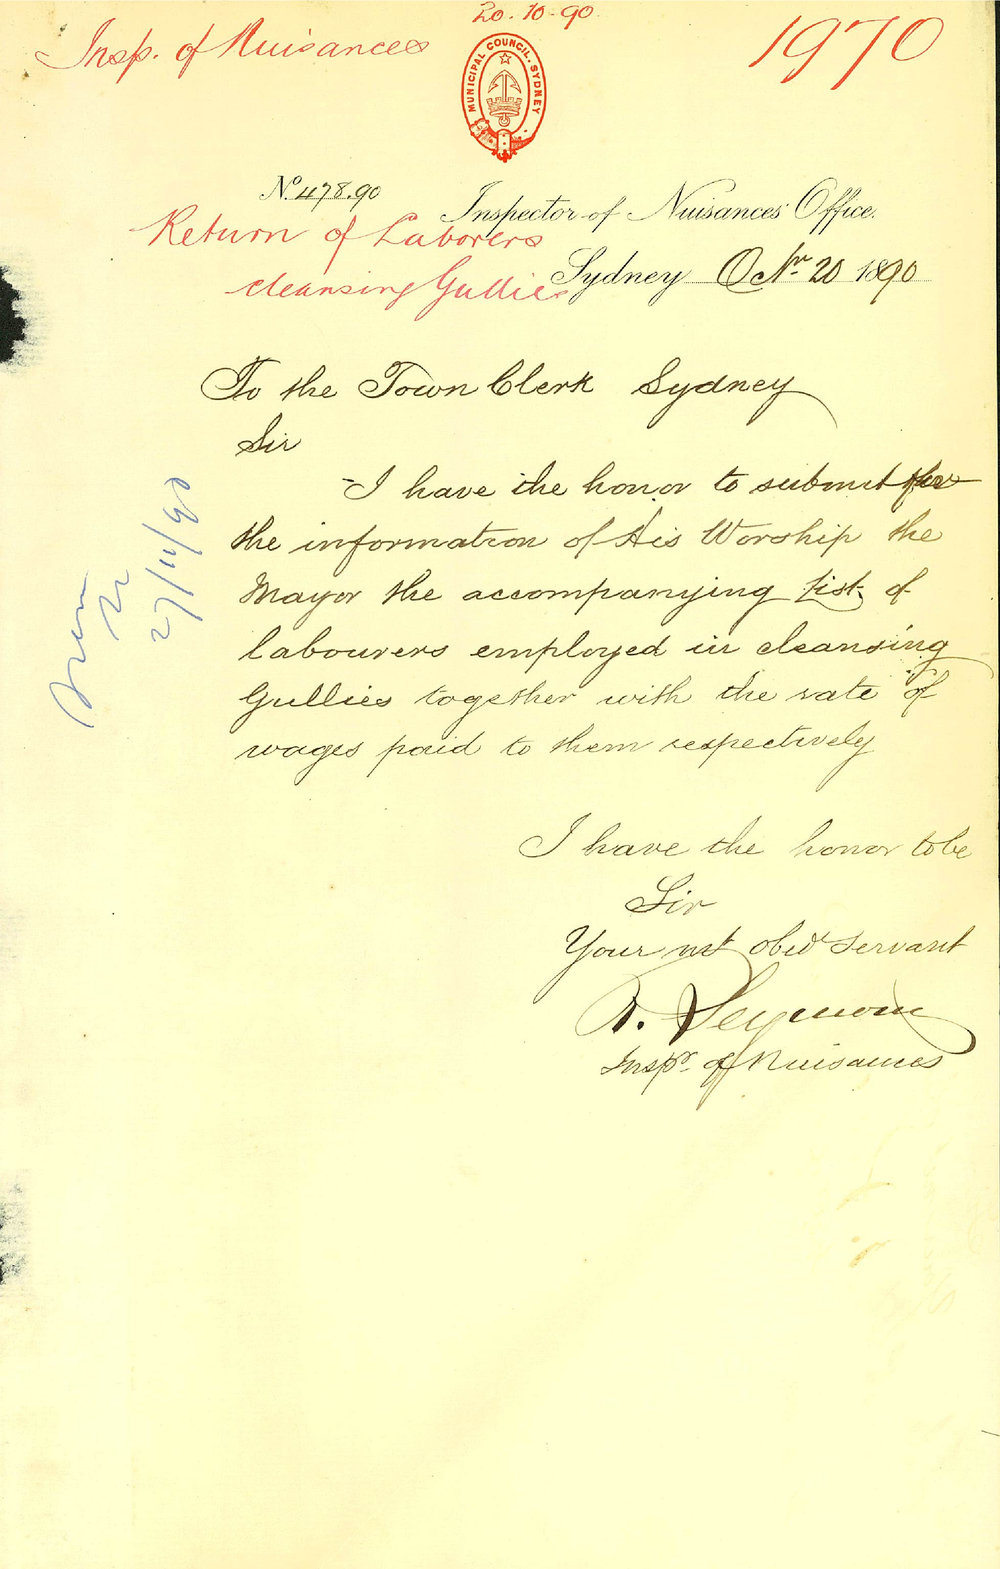 20.10.90
Insp. of Nuisances
1970
MUNICIPAL COUNCIL. SYDNEY
No. 478.90
Inspector of Nuisances Office.
Return of Laborers
cleansing Gullies
Sydney Octr 20 1890
To the Town Clerk Sydney
Sir
I have the honor to submit for
the information of His Worship the
Mayor the accompanying list of
labourers employed in cleansing
Gullies together with the rate of
wages paid to them respectively
27/11/90
I have the honor to be
Sir
Your mt obed servant
R. Seymour
Inspr. of Nuisances